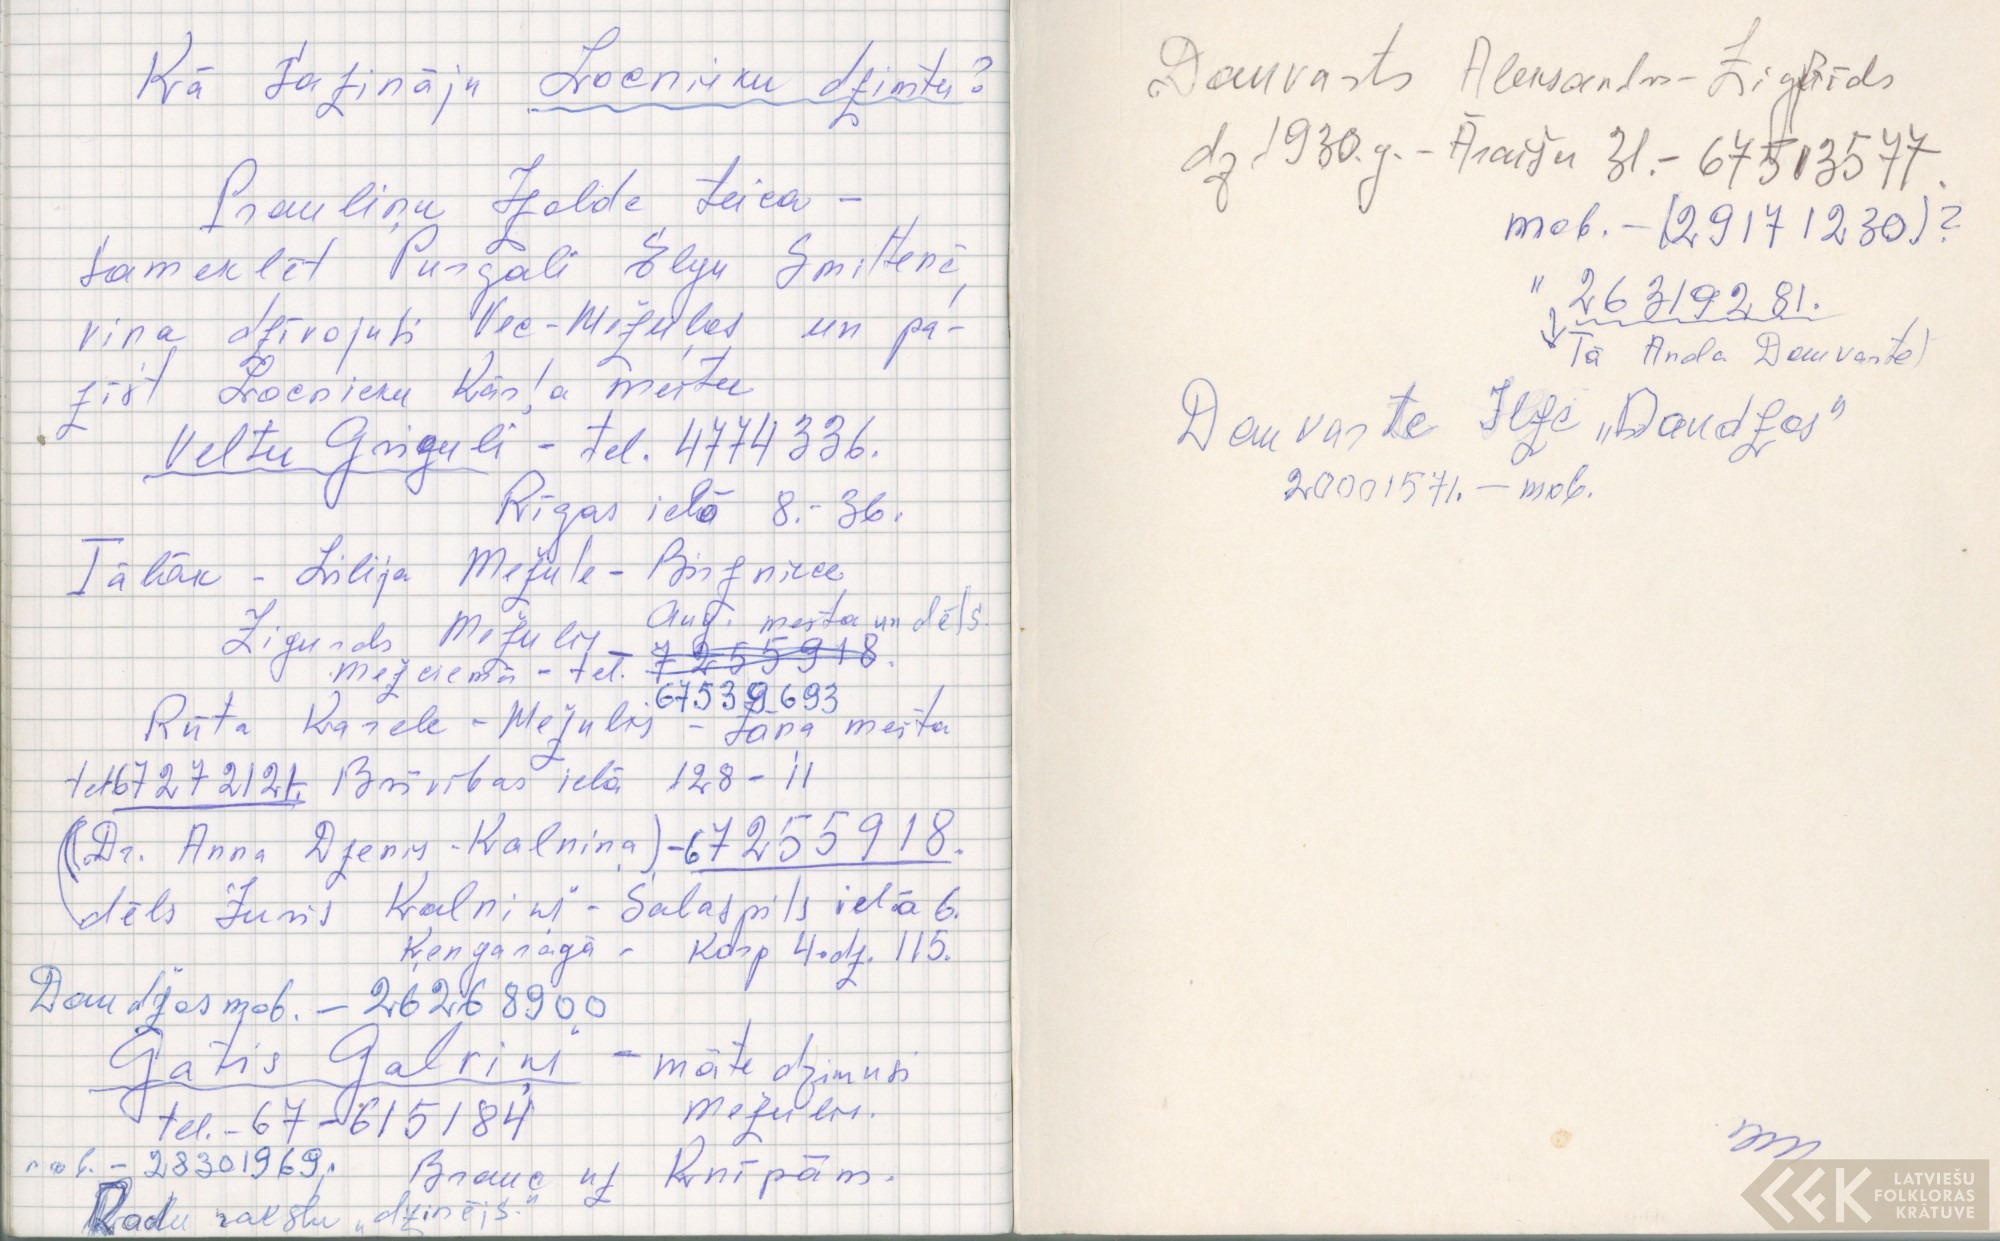 Kā sazināju Locnieku dzimtu?
Prauliņu Izolde teica -
sameklēt Purgali Elgu Smiltenē,
viņa dzīvojusi Vec-Mežuļos un pa-
zīst Locnieku Kārļa meitu
Veltu Griguli - tel. 4774336.
Rīgas ielā 8.-36.
Tālāk - Lilija Mežule - Birzniece
Aug. meita un dēls.
Zigurds Mežulis
Mežciemā - tel. 7255918.
67539693
Rūta Karele - Mežulis - Jāņa meita
tel. 67272121. Brīvības ielā 128 - 11
(Dr. Anna Dzenis - Kalniņa) - 67255918.
dēls Juris Kalniņš - Salaspils ielā 6.
Ķengaragā - Korp 4. dz. 115.
Daudzos mob. - 26268900
Gatis Galviņš - māte dzimusi
Mežulis.
tel. - 67-615184
mob. - 28301969. Brauc uz Knīpām.
Radu rakstu "dzinējs."
Dauvarts Aleksandrs - Zigfrīds
dz. 1930.g. - Āraišu 31. - 67513577.
mob. - (29171230)?
" 26319281.
Tā Anda Dauvarte)
Dauvarte Ilze "Daudzos"
20001571. - mob.
LATVIEŠU
FOLKLORAS
KRĀTUVE